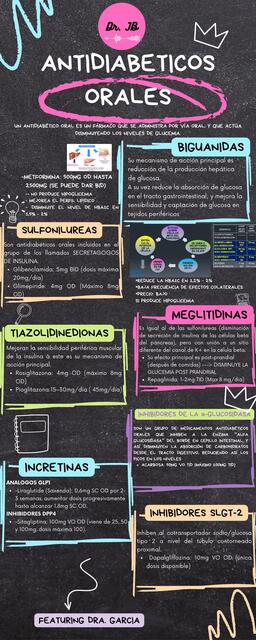 Dr. JB.
ANTIDIABETICOS
ORALES
UN ANTIDIABÉTICO ORAL ES UN FÁRMACO QUE SE ADMINISTRA POR VÍA ORAL, Y QUE ACTÚA
DISMINUYENDO LOS NIVELES DE GLUCEMIA.
BIGUANIDAS
Su mecanismo de acción principal es
reducción de la producción hepática
de glucosa.
A su vez reduce la absorción de glucosa
en el tracto gastrointestinal; y mejora la
sensibilidad y captación de glucosa en
tejidos periféricos
-METFORMINA: 500MG OD HASTA
2500MG (SE PUEDE DAR BID)
-- NO PRODUCE HIPOGLICEMIA
- MEJORA EL PERFIL LIPIDICO
- DISMINUYE EL NIVEL DE HBA1C EN
1,5% - 2%
SULFONILUREAS
Son antidiabéticos orales incluidos en el
grupo de los llamados SECRETAGOGOS
DE INSULINA.
Glibenclamida: 5mg BID (dosis máxima
20mg/día)
Glimepiride: 4mg OD (Máximo 8mg
OD)
-REDUCE LA HBA1C EN 1,5% - 2%
-BAJA FRECUENCIA DE EFECTOS COLATERALES
-PRECIO: BAJO
SI PRODUCE HIPOGLICEMIA
MEGLITIDINAS
Es igual al de las sulfonilureas (disminución
de secreción de insulina de las células beta
del páncreas), pero con unión a un sitio
diferente del canal de K+ en la célula beta:
Su efecto principal es post-prandial
(después de comidas) ---> DISMINUYE LA
GLUCEMIA POST PRANDIAL
Repaglinida: 1-2mg TID (Max 8 mg/día)
TIAZOLIDINEDIONAS
Mejoran la sensibilidad periférica muscular
de la insulina & este es su mecanismo de
acción principal.
Rosiglitazona: 4mg OD (máximo 8mg
OD)
Pioglitazona 15-30mg/día ( 45mg/día)
INHIBIDORES DE LA α-GLUCOSIDASA
SON UN GRUPO DE MEDICAMENTOS ANTIDIABETICOS
ORALES QUE INHIBEN A LA ENZIMA "ALFA
GLUCOSIDASA" DEL BORDE EN CEPILLO INTESTINAL, Y
ASI DISMINUYEN LA ABSORCION DE CARBOHIDRATOS
DESDE EL TRACTO DIGESTIVO, REDUCIENDO ASI LOS
PICOS EN LOS NIVELES
ACARBOSA: 50MG VO TID (MAXIMO 100MG TID)
INCRETINAS
ANALOGOS GLP1
-Liraglutide (Saxenda): 0,6mg SC OD por 2-
3 semanas, aumentar dosis progresivamente
hasta alcanzar 1.8mg SC OD.
INHIBIDORES DPP4
-Sitagliptina: 100mg VO OD (viene de 25, 50
y 100mg; dosis máxima 100).
INHIBIDORES SLGT-2
Inhiben al cotransportador sodio/glucosa
tipo-2 a nivel del túbulo contorneado
proximal.
Dapalgliflozina: 10mg VO OD. (única
dosis disponible)
FEATURING DRA. GARCIA